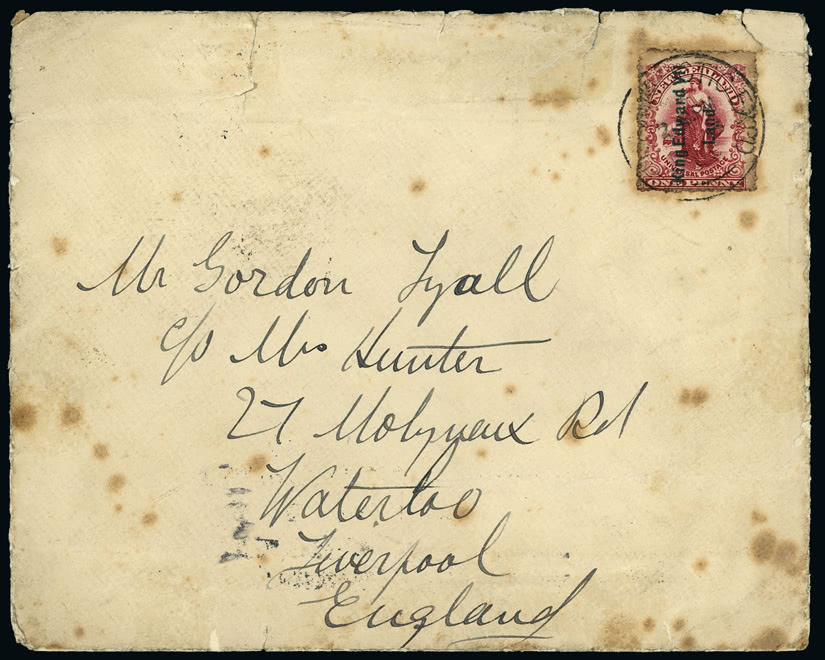 NEW ZEALAND
King Edward VII
Land
UNIVERSAL POSTAGE
ONE PENNY
Mr Gordon Lyall
c/o Mrs Hunter
27 Molyneaux Rd
Waterloo
Liverpool
England